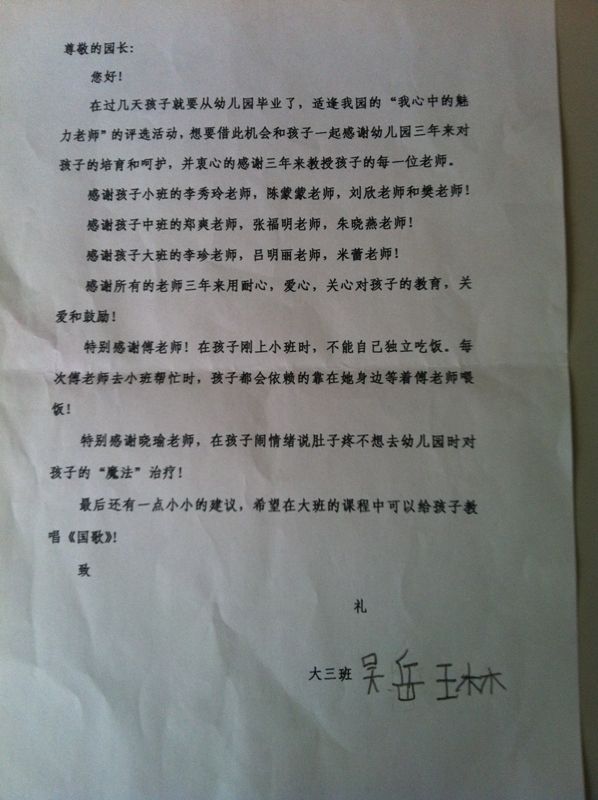 尊敬的园长：
您好！
在过几天孩子就要从幼儿园毕业了，适逢我园的“我心中的魅
力老师”的评选活动，想要借此机会和孩子一起感谢幼儿园三年来对
孩子的培育和呵护，并衷心的感谢三年来教授孩子的每一位老师。
感谢孩子小班的李秀玲老师，陈蒙蒙老师，刘欣老师和樊老师！
感谢孩子中班的郑爽老师，张福明老师，朱晓燕老师！
感谢孩子大班的李珍老师，吕明丽老师，米蕾老师！
感谢所有的老师三年来用耐心，爱心，关心对孩子的教育，关
爱和鼓励！
特别感谢傅老师！在孩子刚上小班时，不能自己独立吃饭。每
次傅老师去小班帮忙时，孩子都会依赖的靠在她身边等着傅老师喂
饭！
特别感谢晓瑜老师，在孩子闹情绪说肚子疼不想去幼儿园时对
孩子的“魔法”治疗！
最后还有一点小小的建议，希望在大班的课程中可以给孩子教
唱《国歌》！
致
礼
大三班 吴岳玉林